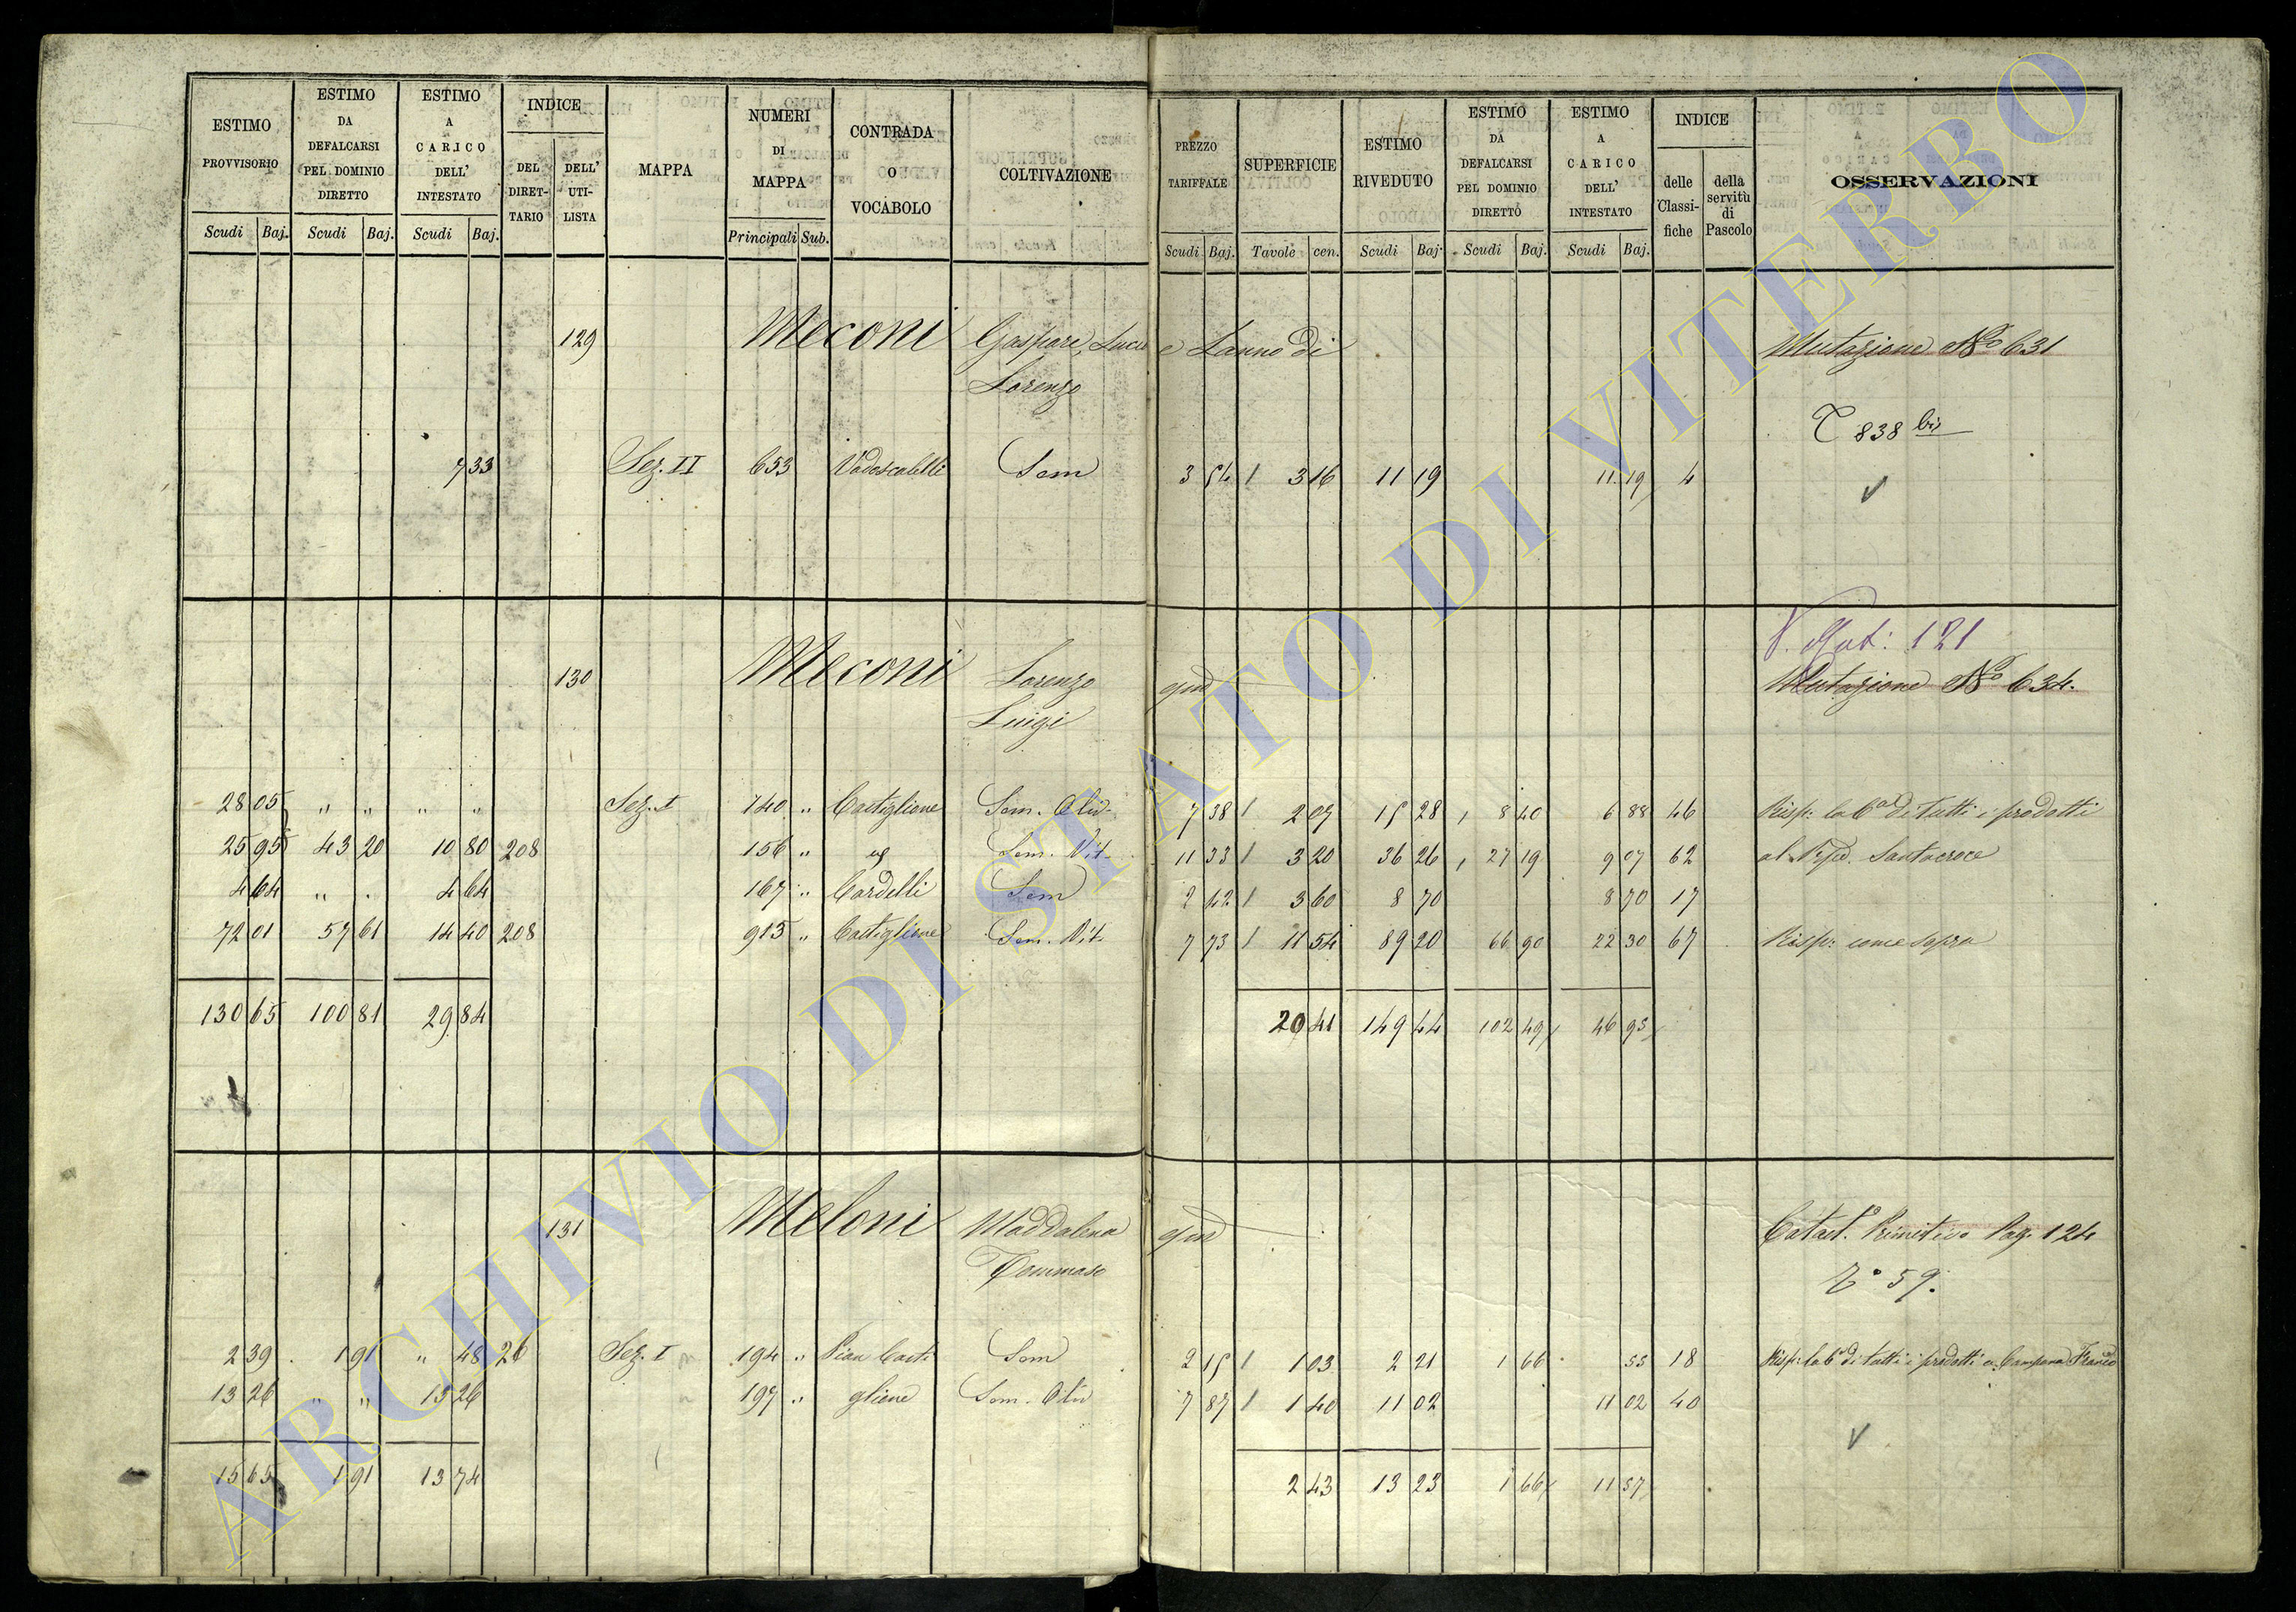 ESTIMO PROVVISORIO Scudi Baj.
ESTIMO DA DEFALCARSI PEL DOMINIO DIRETTO Scudi Baj.
ESTIMO A CARICO DELL' INTESTATO Scudi Baj.
INDICE DEL DIRETTARIO DELL' UTILISTA
MAPPA
NUMERI DI MAPPA Principali Sub.
CONTRADA O VOCABOLO
COLTIVAZIONE
PREZZO TARIFFALE Scudi Baj.
SUPERFICIE Tavole cen.
ESTIMO RIVEDUTO Scudi Baj.
ESTIMO DA DEFALCARSI PEL DOMINIO DIRETTO Scudi Baj.
ESTIMO A CARICO DELL' INTESTATO Scudi Baj.
INDICE delle Classifiche della servitù di Pascolo
OSSERVAZIONI
129 Meconi Gaspare, e di Mutazione No 631
Lorenzo
838 bis
7 33 Sez. II 653 Sem 3 54 3 16 11 19 11 19 4
V. Mut: 121
130 Meconi Lorenzo qm Mutazione No 634.
Luigi
28 05 " " " " Sez. I 140 " Castiglione Sem. Oliv. 7 38 2 07 15 28 8 40 6 88 46 Risp: di tutti i prodotti
25 95 43 20 10 80 208 156 " Sem. Vit. 11 33 3 20 36 26 27 19 9 07 62 al Santacroce
4 64 " " 4 64 167 " Cardelli Sem 2 42 3 60 8 70 8 70 17
72 01 57 61 14 40 208 913 " Castiglione Sem. Vit. 7 73 11 54 89 20 66 90 22 30 67 Risp: come sopra
130 65 100 81 29 84 20 41 149 44 102 49 46 95
131 Meloni Maddalena qm Catast. Primitivo Pag. 124
Tommaso
59.
2 39 1 91 " 48 26 Sez. I 194 " Pian Casti Sem 2 15 1 03 2 21 1 66 55 18 Risp: di tutti i prodotti a Campana
13 26 " " 13 26 197 " glione Sem. Oliv 7 87 1 40 11 02 11 02 40
15 65 1 91 13 74 2 43 13 23 1 66 11 57
ARCHIVIO DI STATO DI VITERBO